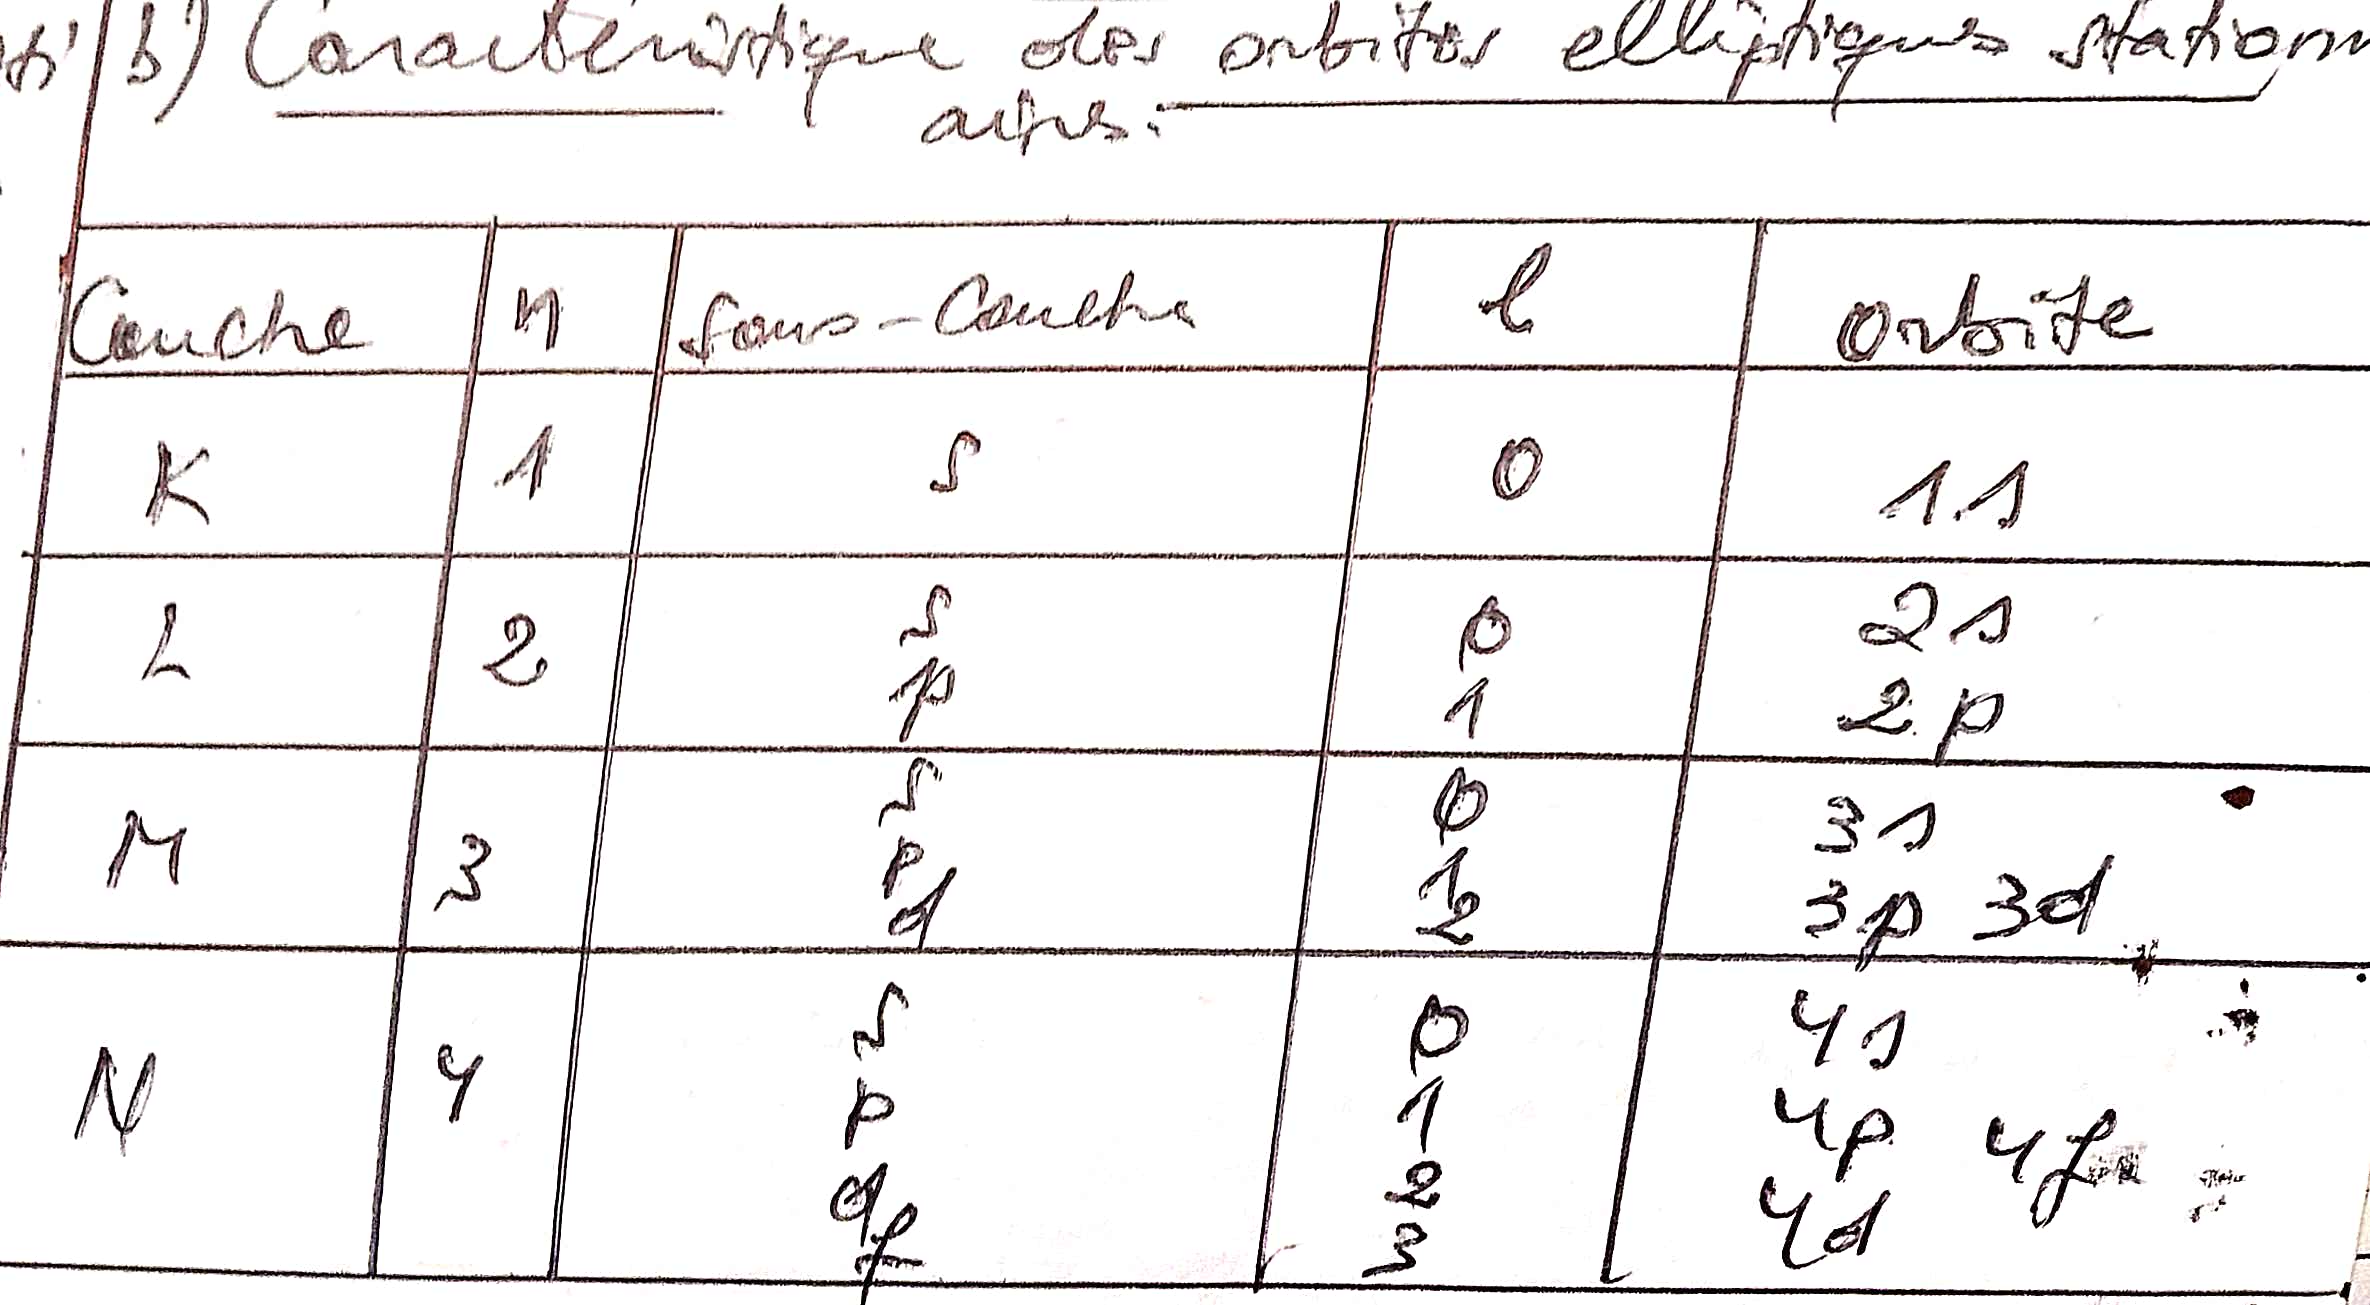 b) Caractéristique des orbites elliptiques stationn
aires.
Couche n sous-couche l orbite
K 1 s 0 1s
L 2 s 0 2s
p 1 2p
M 3 s 0 3s
p 1 3p 3d
d 2
N 4 s 0 4s
p 1 4p 4f
d 2 4d
f 3